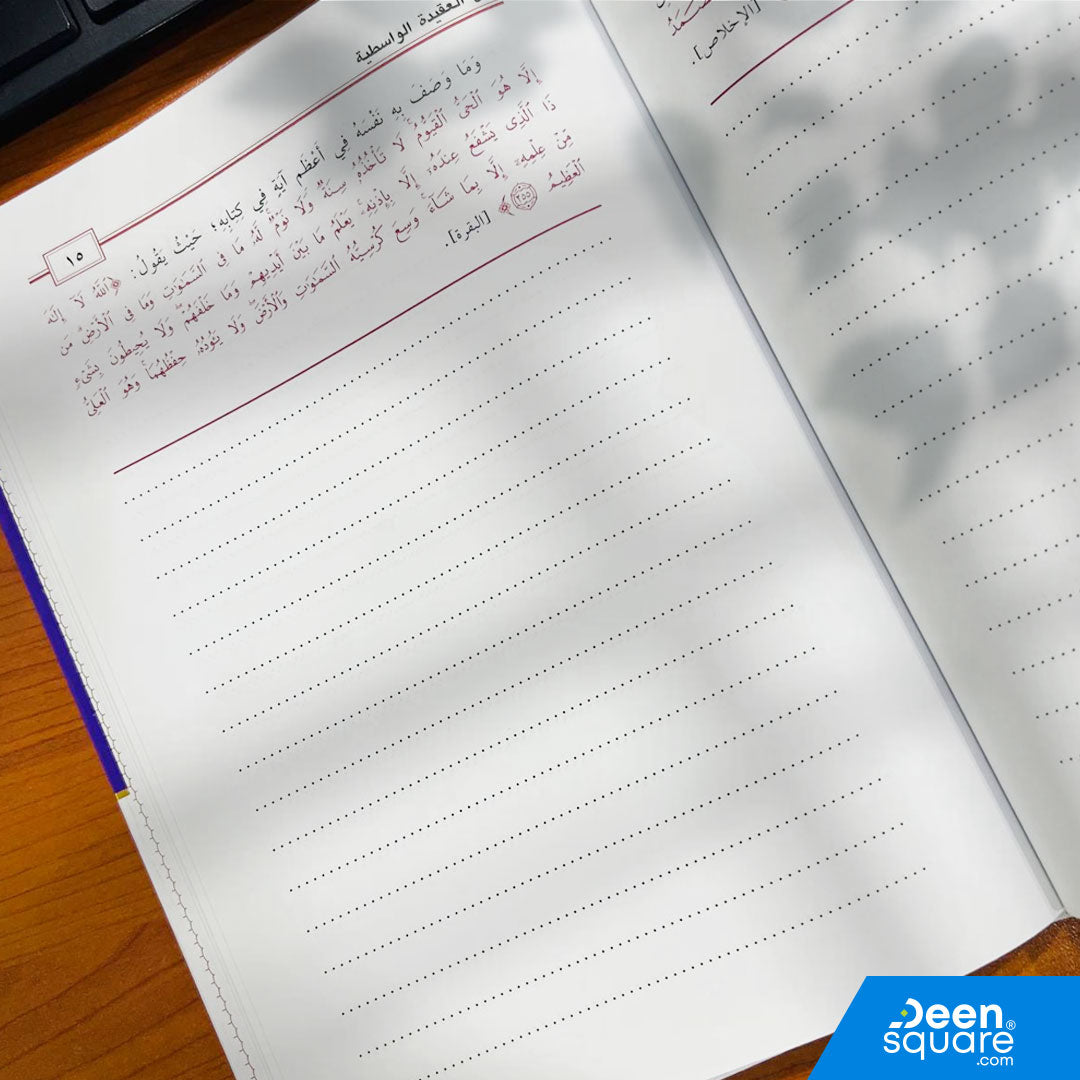 العقيدة الواسطية
١٥
وَمَا وَصَفَ بِهِ نَفْسَهُ فِي أَعْظَمِ آيَةٍ فِي كِتَابِهِ؛ حَيْثُ يَقُولُ: ﴿ٱللَّهُ لَآ إِلَٰهَ
إِلَّا هُوَ ٱلْحَىُّ ٱلْقَيُّومُ ۚ لَا تَأْخُذُهُۥ سِنَةٌ وَلَا نَوْمٌ ۚ لَّهُۥ مَا فِى ٱلسَّمَٰوَٰتِ وَمَا فِى ٱلْأَرْضِ ۗ مَن
ذَا ٱلَّذِى يَشْفَعُ عِندَهُۥٓ إِلَّا بِإِذْنِهِۦ ۚ يَعْلَمُ مَا بَيْنَ أَيْدِيهِمْ وَمَا خَلْفَهُمْ ۖ وَلَا يُحِيطُونَ بِشَىْءٍ
مِّنْ عِلْمِهِۦٓ إِلَّا بِمَا شَآءَ ۚ وَسِعَ كُرْسِيُّهُ ٱلسَّمَٰوَٰتِ وَٱلْأَرْضَ ۖ وَلَا يَـُٔودُهُۥ حِفْظُهُمَا ۚ وَهُوَ ٱلْعَلِىُّ
ٱلْعَظِيمُ ٢٥٥﴾ [البقرة].
[الإخلاص].
Deen
square®
.com